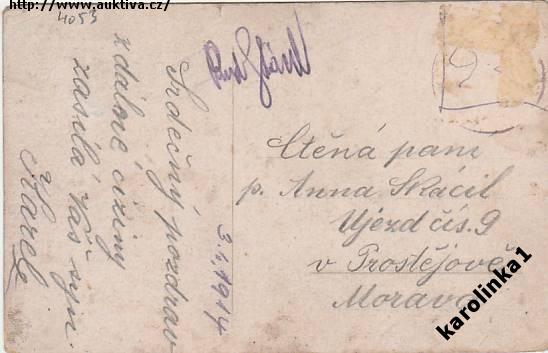 http://www.auktiva.cz/
4053
Srdečný pozdrav
z dálné ciziny
zasílá Váš syn
Karel
3.1.1914
Ctěná paní
p. Anna Skácil
Újezd čís. 9
v Prostějově
Morava
karolinka1